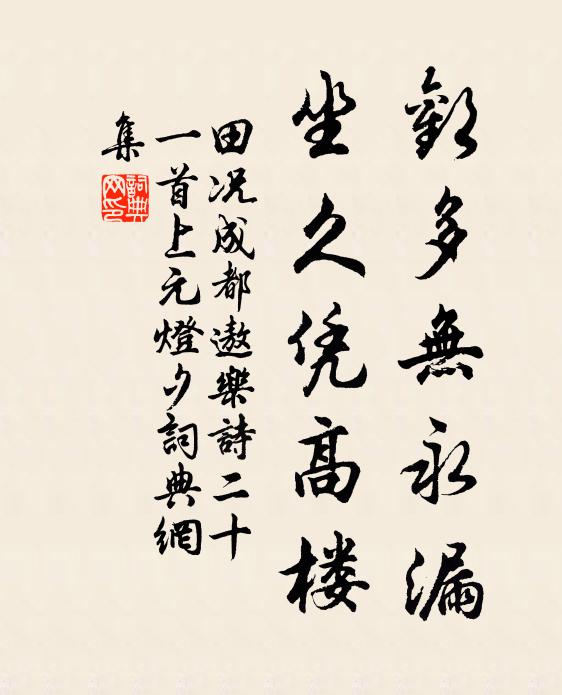 歡多無永漏
坐久凭高楼
田况成都遨樂詩二十
一首上元燈夕詞典網
集
詞典
网印